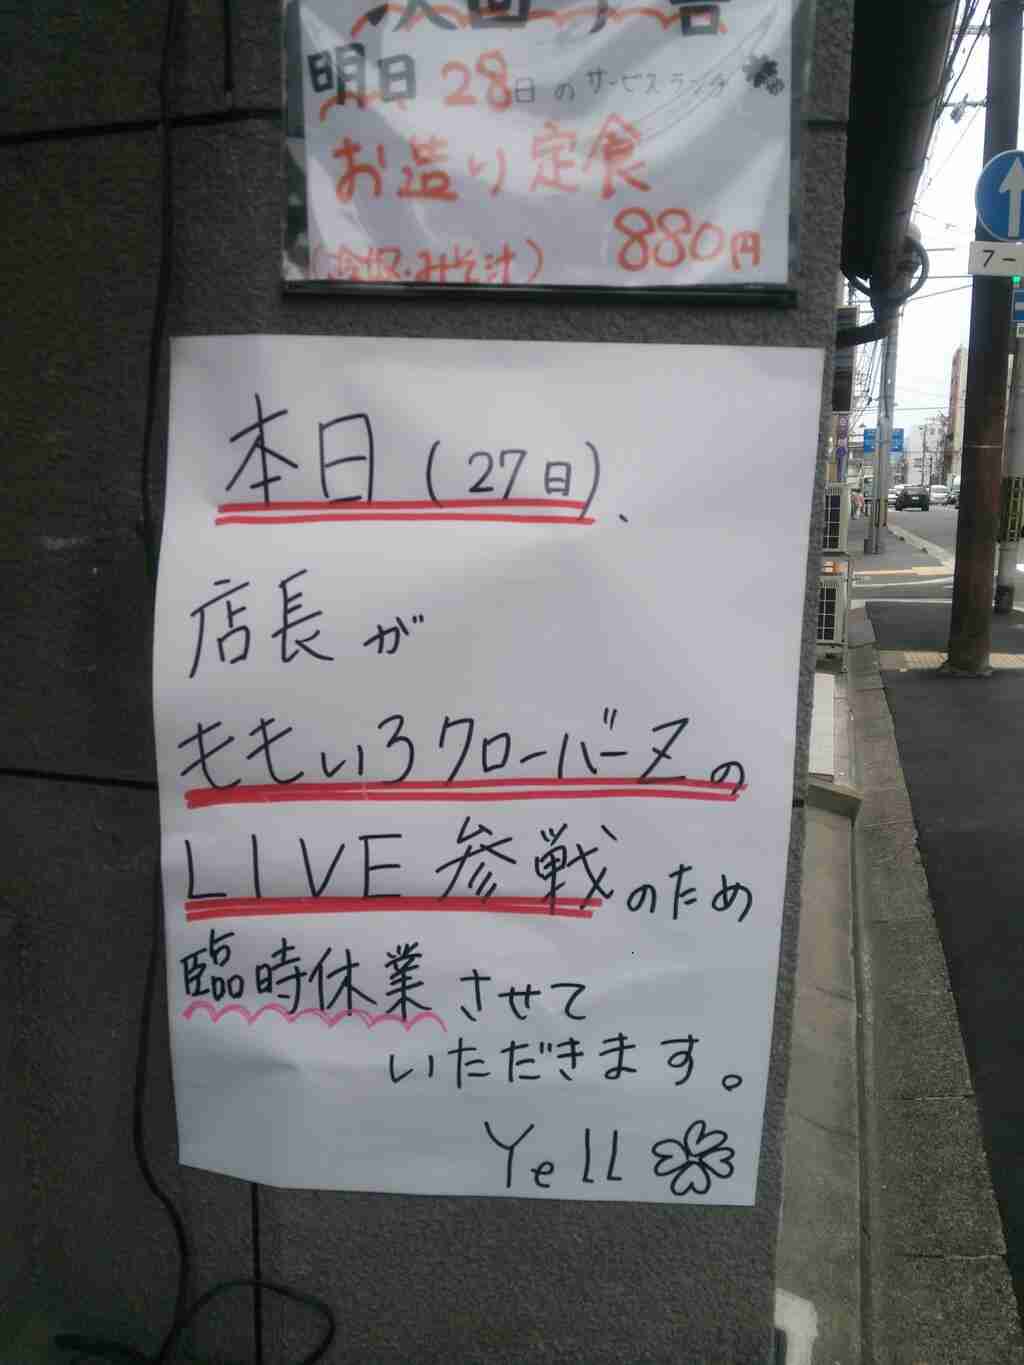 次回予告
明日28日のサービスランチ
お造り定食
880円
本日(27日)、
店長が
ももいろクローバーZの
LIVE参戦のため
臨時休業させて
いただきます。
Yell